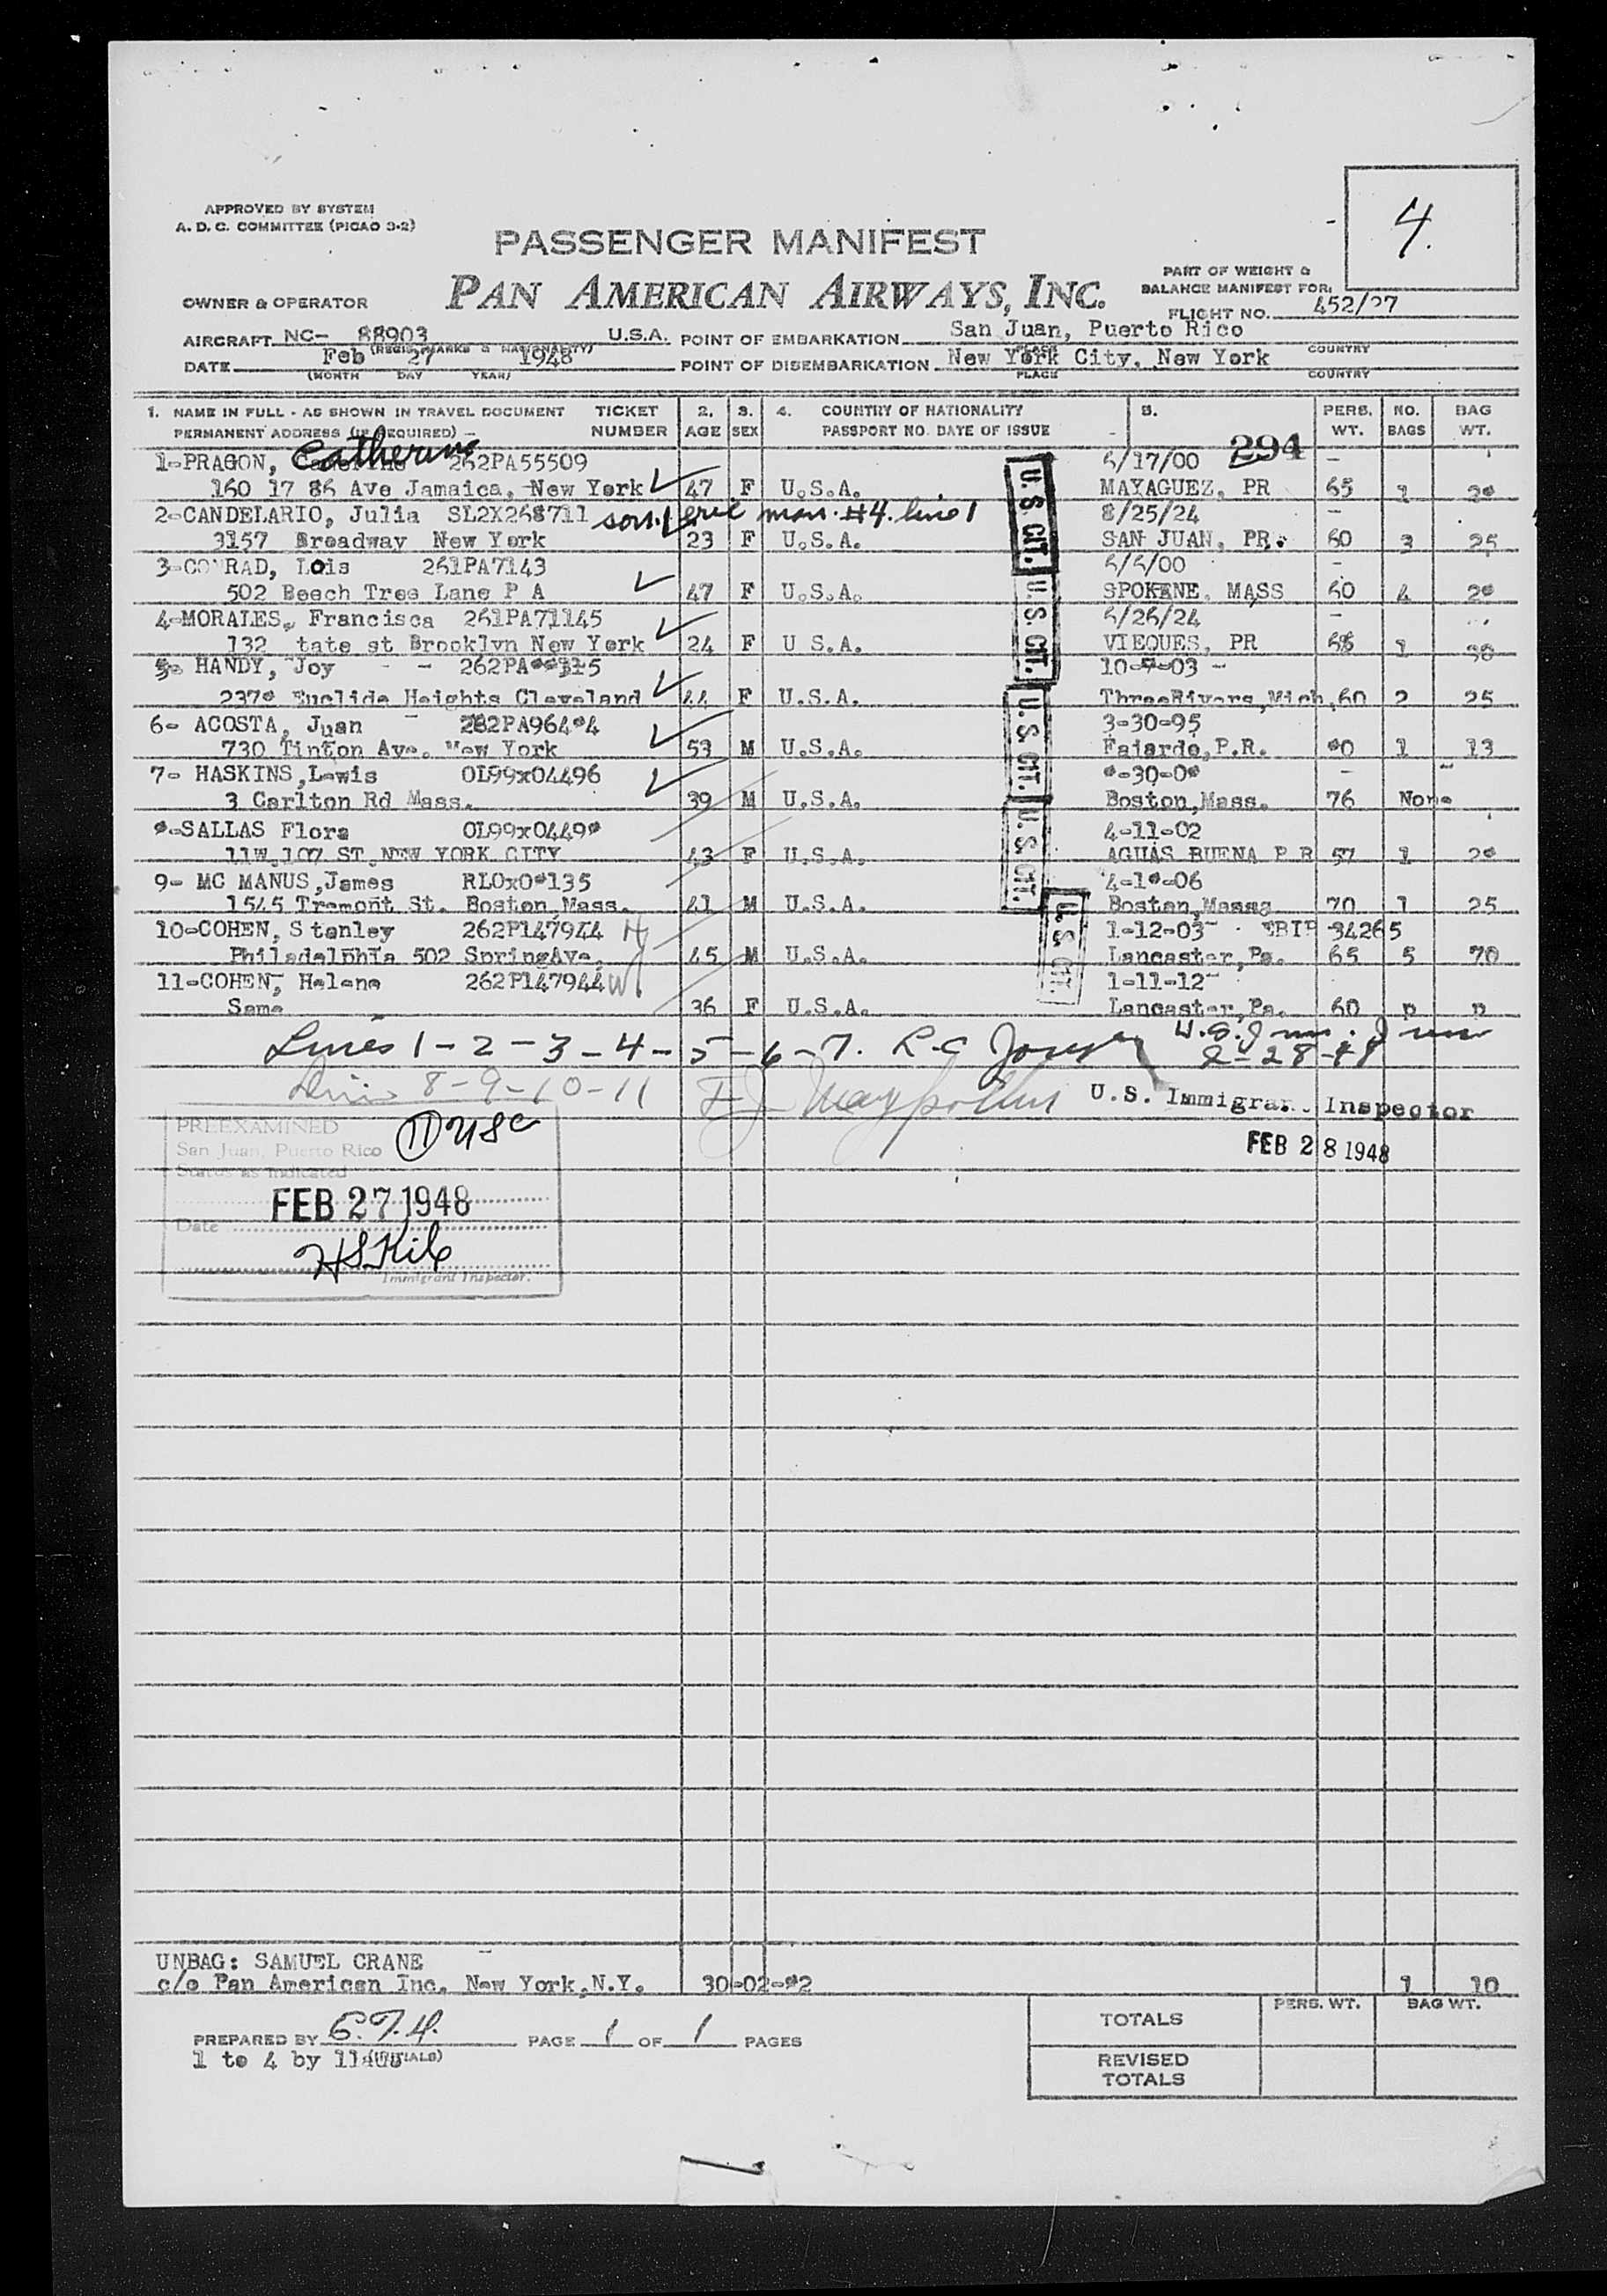 4.
APPROVED BY SYSTEM
A. D. C. COMMITTEE (PICAO 3-2)
PASSENGER MANIFEST
PART OF WEIGHT &
BALANCE MANIFEST FOR:
OWNER & OPERATOR PAN AMERICAN AIRWAYS, INC.
FLIGHT NO. 452/27
AIRCRAFT NC- 88903 U.S.A. POINT OF EMBARKATION San Juan, Puerto Rico
(REGIS. MARKS & NATIONALITY) PLACE COUNTRY
DATE Feb 27 1948 POINT OF DISEMBARKATION New York City, New York
(MONTH DAY YEAR) PLACE COUNTRY
1. NAME IN FULL - AS SHOWN IN TRAVEL DOCUMENT TICKET 2. 3. 4. COUNTRY OF NATIONALITY 5. PERS. NO. BAG
PERMANENT ADDRESS (IF REQUIRED) NUMBER AGE SEX PASSPORT NO. DATE OF ISSUE WT. BAGS WT.
294
1-PRAGON, Catherine 262PA55509 6/17/00 -
160 17 86 Ave Jamaica, New York 47 F U.S.A. MAYAGUEZ, PR 65 1
2-CANDELARIO, Julia SL2X268711 man. #4. line 1 8/25/24 -
3157 Broadway New York 23 F U.S.A. SAN JUAN, PR. 60 3 25
3-CONRAD, Lois 261PA7143 6/6/00 -
502 Beech Tree Lane P A 47 F U.S.A. SPOKENE, MASS 60 4 2*
4-MORALES, Francisca 261PA71145 6/26/24 -
132 tate st Brooklyn New York 24 F U S.A. VIEQUES, PR 1 30
5- HANDY, Joy - - 10-7-03 -
237* Euclide Heights Cleveland 44 F U.S.A. ThreeRivers,Mich, 60 2 25
6- ACOSTA, Juan 262PA964*4 3-30-95
730 Tinton Ave. New York 53 M U.S.A. Fajardo,P.R. *0 1 13
7- HASKINS,Lewis OL99x04496 *-30-0* -
3 Carlton Rd Mass. 39 M U.S.A. Boston,Mass. 76 None
*-SALLAS Flora OL99x0449* 4-11-02
11W.107 ST.NEW YORK CITY 43 F U.S.A. AGUAS BUENA P R 57 1 2*
9- MC MANUS,James RLOx0*135 4-1*-06
1545 Tremont St. Boston,Mass. 41 M U.S.A. Boston,Masss 70 1 25
10-COHEN, Stanley 262P147944 H 1-12-03 34265
Philadelphia 502 SpringAve. 45 M U.S.A. Lancaster,Pa. 65 5 70
11-COHEN, Helene 262P147944 W 1-11-12
Same 36 F U.S.A. Lancaster,Pa. 60 p p
U.S. CIT.
U.S. CIT.
U.S. CIT.
U.S. CIT.
U.S. CIT.
Lines 1-2-3-4-5-6-7. R.C 2-28-48
8-9-10-11
U.S. Immigrant Inspector
FEB 28 1948
PREEXAMINED 11 USC
San Juan, Puerto Rico
Status as indicated
Date FEB 27 1948
Immigrant Inspector.
UNBAG: SAMUEL CRANE
c/o Pan American Inc. New York,N.Y. 30-02-*2 1 10
PREPARED BY PAGE 1 OF 1 PAGES
(INITIALS)
1 to 4 by
PERS. WT. BAG WT.
TOTALS
REVISED
TOTALS